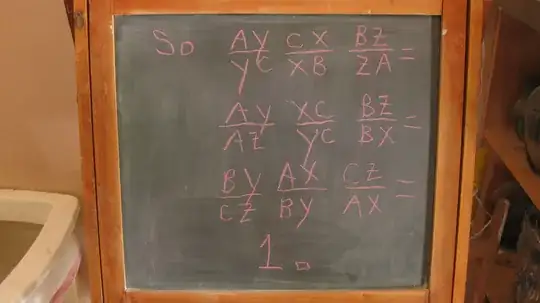 So AY/YC CX/XB BZ/ZA =
AY/AZ XC/YC BZ/BX =
BY/CZ AX/BY CZ/AX =
1. □